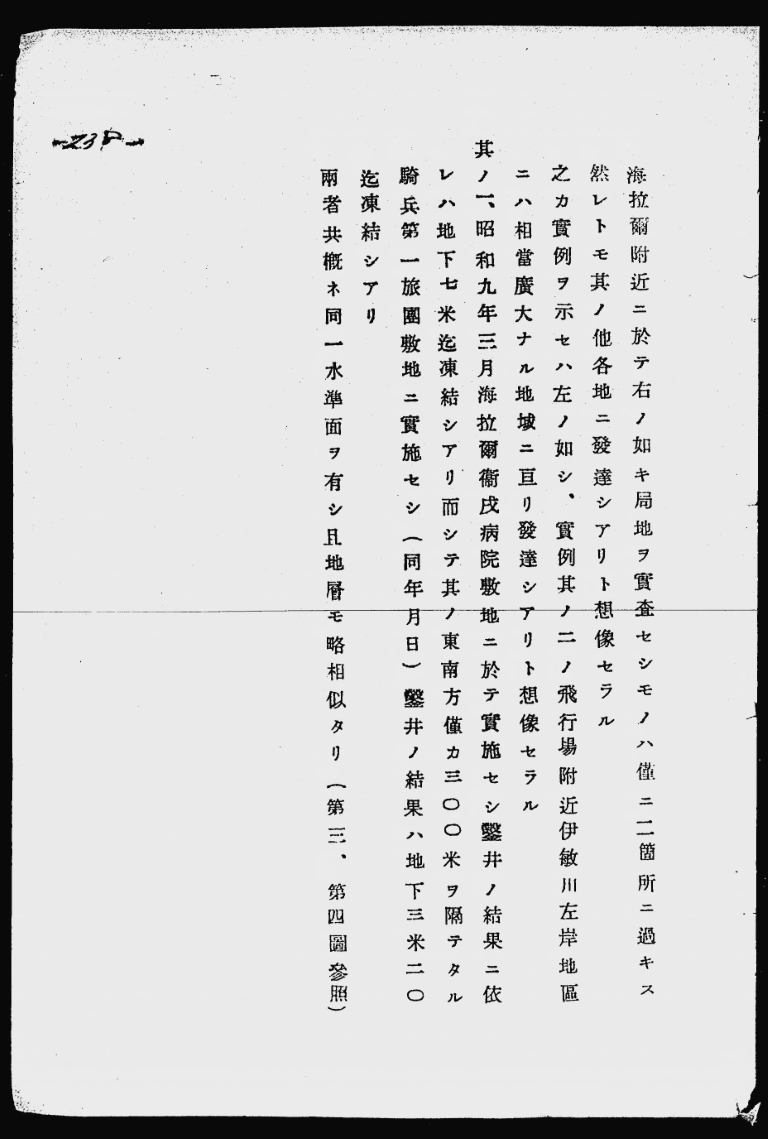 海拉爾附近ニ於テ右ノ如キ局地ヲ實査セシモノハ僅ニ二箇所ニ過キス
然レトモ其ノ他各地ニ發達シアリト想像セラル
之カ實例ヲ示セハ左ノ如シ、實例其ノ二ノ飛行場附近伊敏川左岸地區
ニハ相當廣大ナル地域ニ亘リ發達シアリト想像セラル
其ノ一、昭和九年三月海拉爾衞戌病院敷地ニ於テ實施セシ鑿井ノ結果ニ依
レハ地下七米迄凍結シアリ而シテ其ノ東南方僅カ三〇〇米ヲ隔テタル
騎兵第一旅團敷地ニ實施セシ(同年月日)鑿井ノ結果ハ地下三米二〇
迄凍結シアリ
兩者共概ネ同一水準面ヲ有シ且地層モ略相似タリ(第三、第四圖參照)